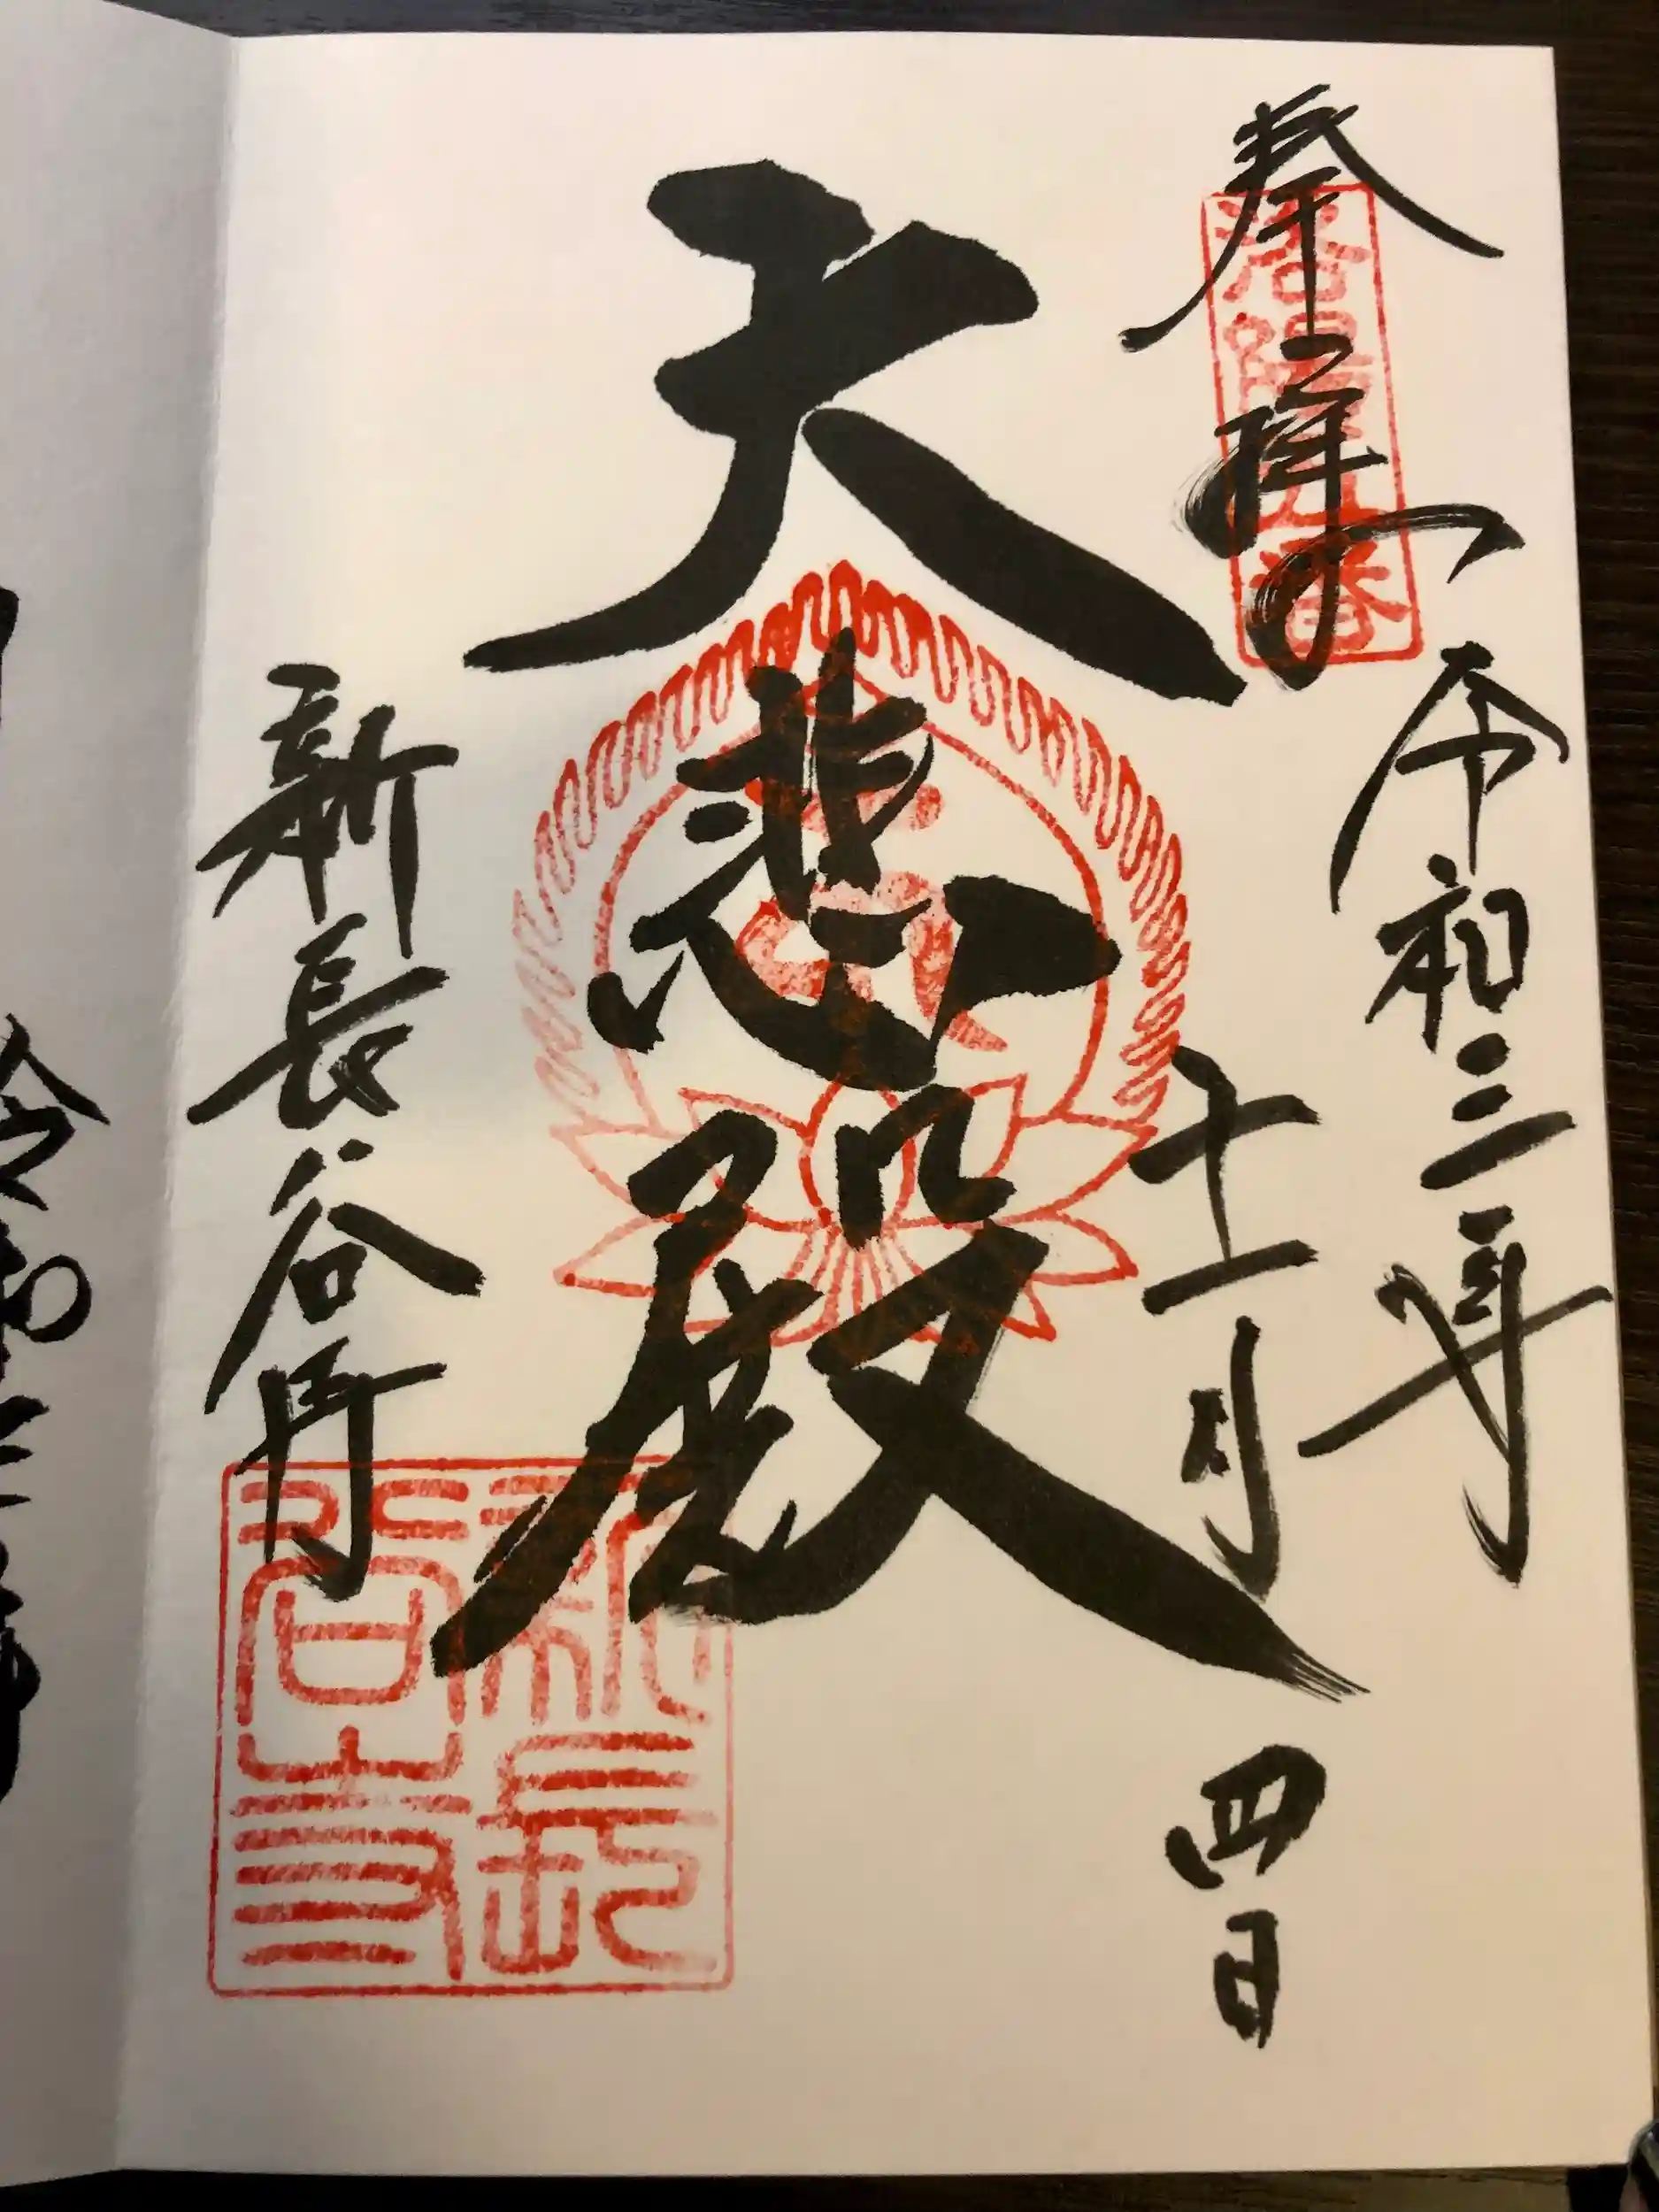 奉拝
洛陽第五番
令和三年
十一月
四日
大悲殿
新長谷寺
新長谷寺
令和三年